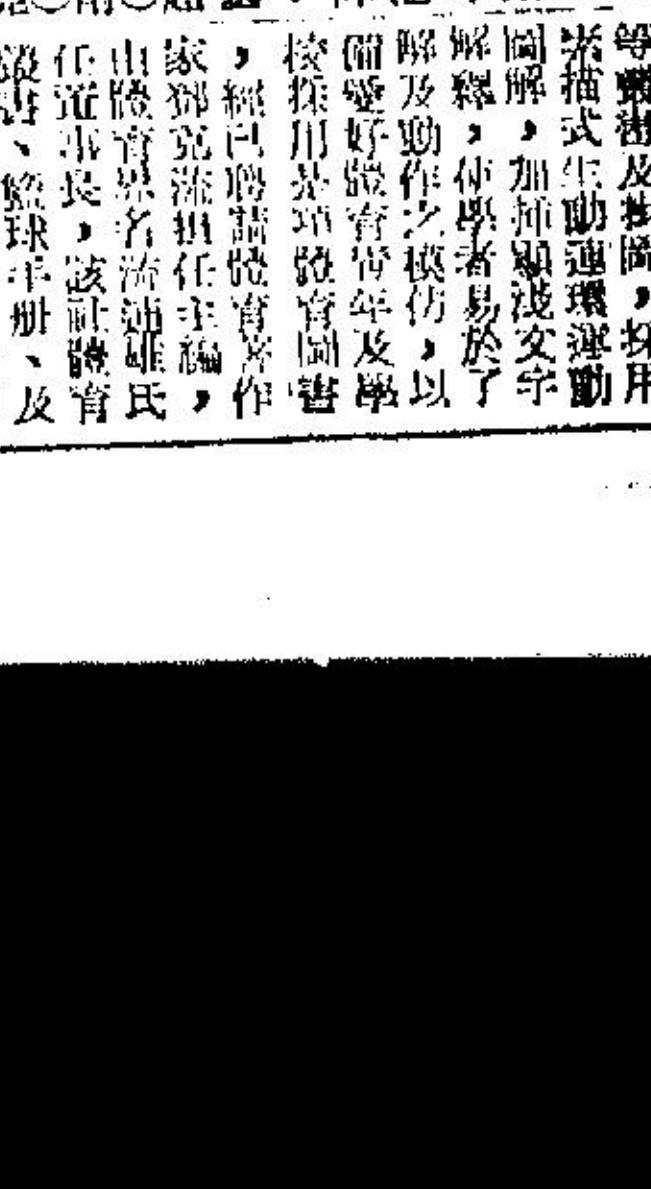 等戰術及掛圖，採用
素描式生動連環運動
圖解，加插顯淺文字
解釋，使學者易於了
解及動作之模仿，以
備愛好體育青年及學
校採用是項體育圖書
，經已聘請體育著作
家鄧克流担任主編，
由體育界名流連雄氏
任董事長，該社體育
叢書、籃球年册、及